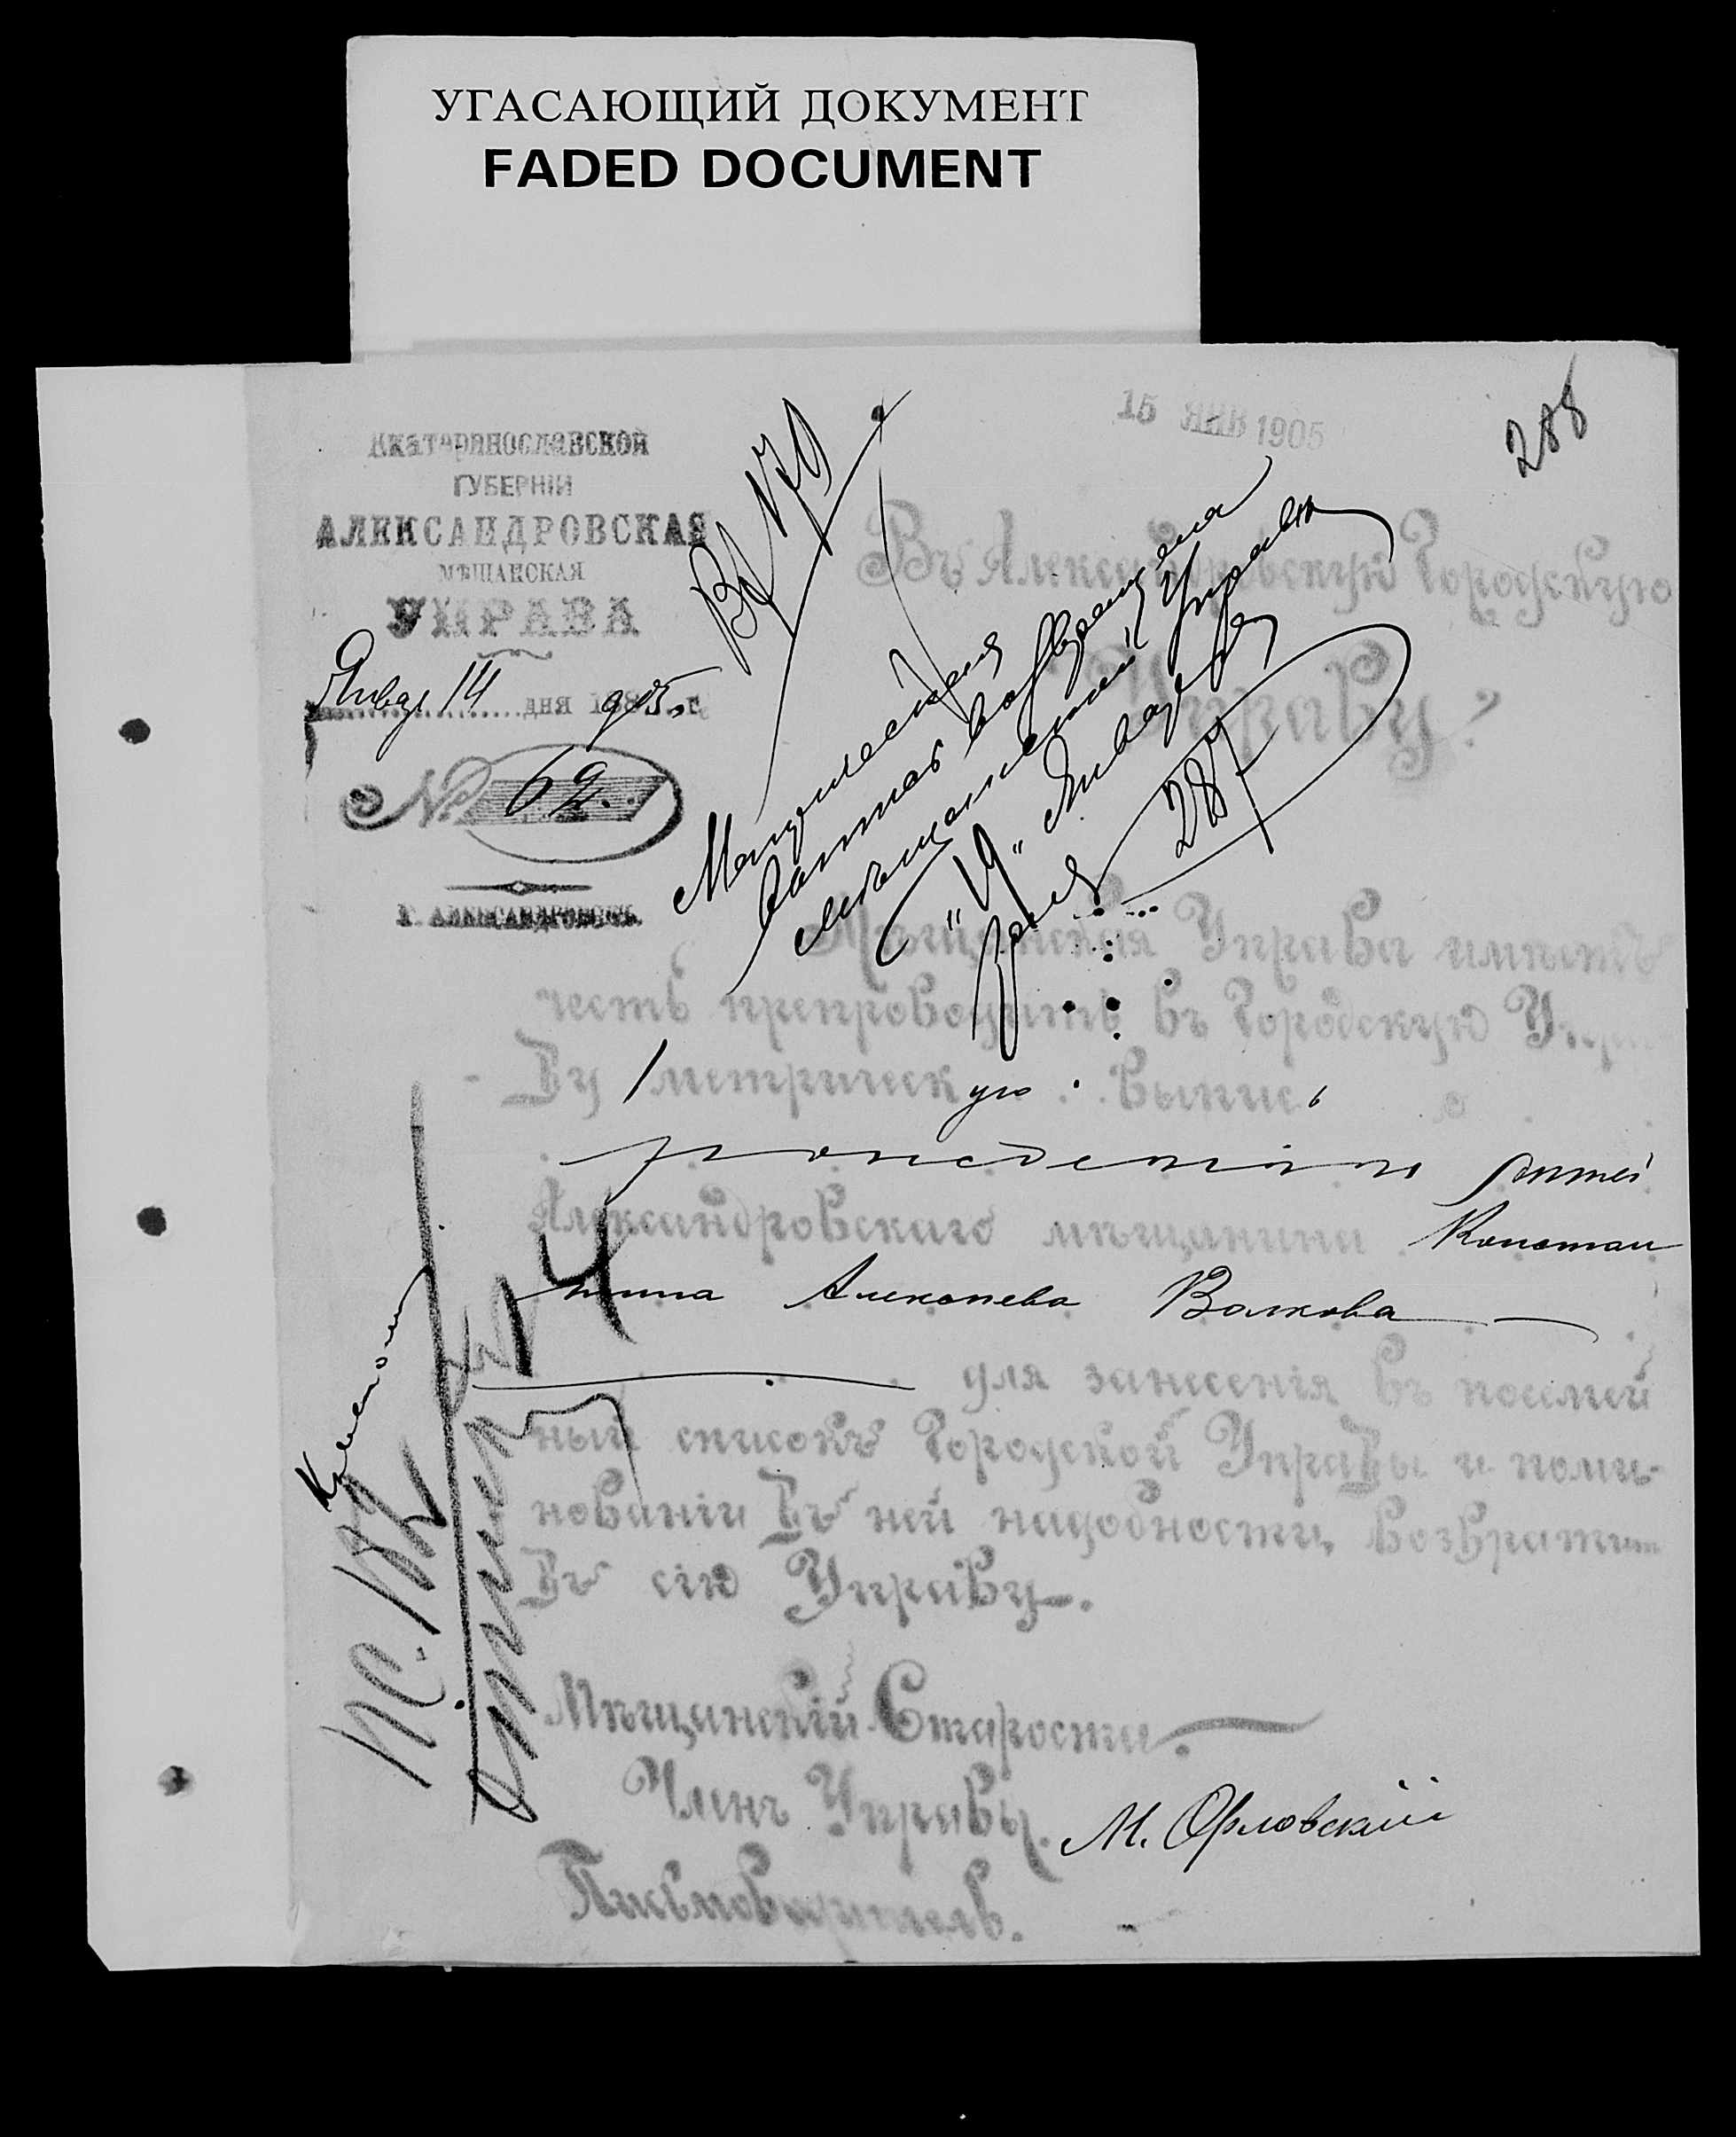 УГАСАЮЩИЙ ДОКУМЕНТ
FADED DOCUMENT
15 ЯНВ 1905
288
Екатеринославской
ГУБЕРНІИ
АЛЕКСАНДРОВСКАЯ
МѢЩАНСКАЯ
УПРАВА
Январ 14 дня 188 905 г.
№ 62
Г. АЛЕКСАНДРОВСКЪ.
Вх № 79
возвращена
мѣщанской Управѣ
"19" Января
287
Въ Александровскую Городскую
Управу.
Мѣщанская Управа имѣетъ
честь препроводить въ Городскую Упра
ву 1 метрическую выпись о
рожденіи дѣтей
Александровскаго мѣщанина Констан
тина Алексѣева Волкова
для занесенія въ посемей
ный списокъ Городской Управы и по ми-
нованіи въ ней надобности, возвратить
въ сію Управу.
Мѣщанскій Староста
Членъ Управы. М. Орловскій
Письмоводитель.